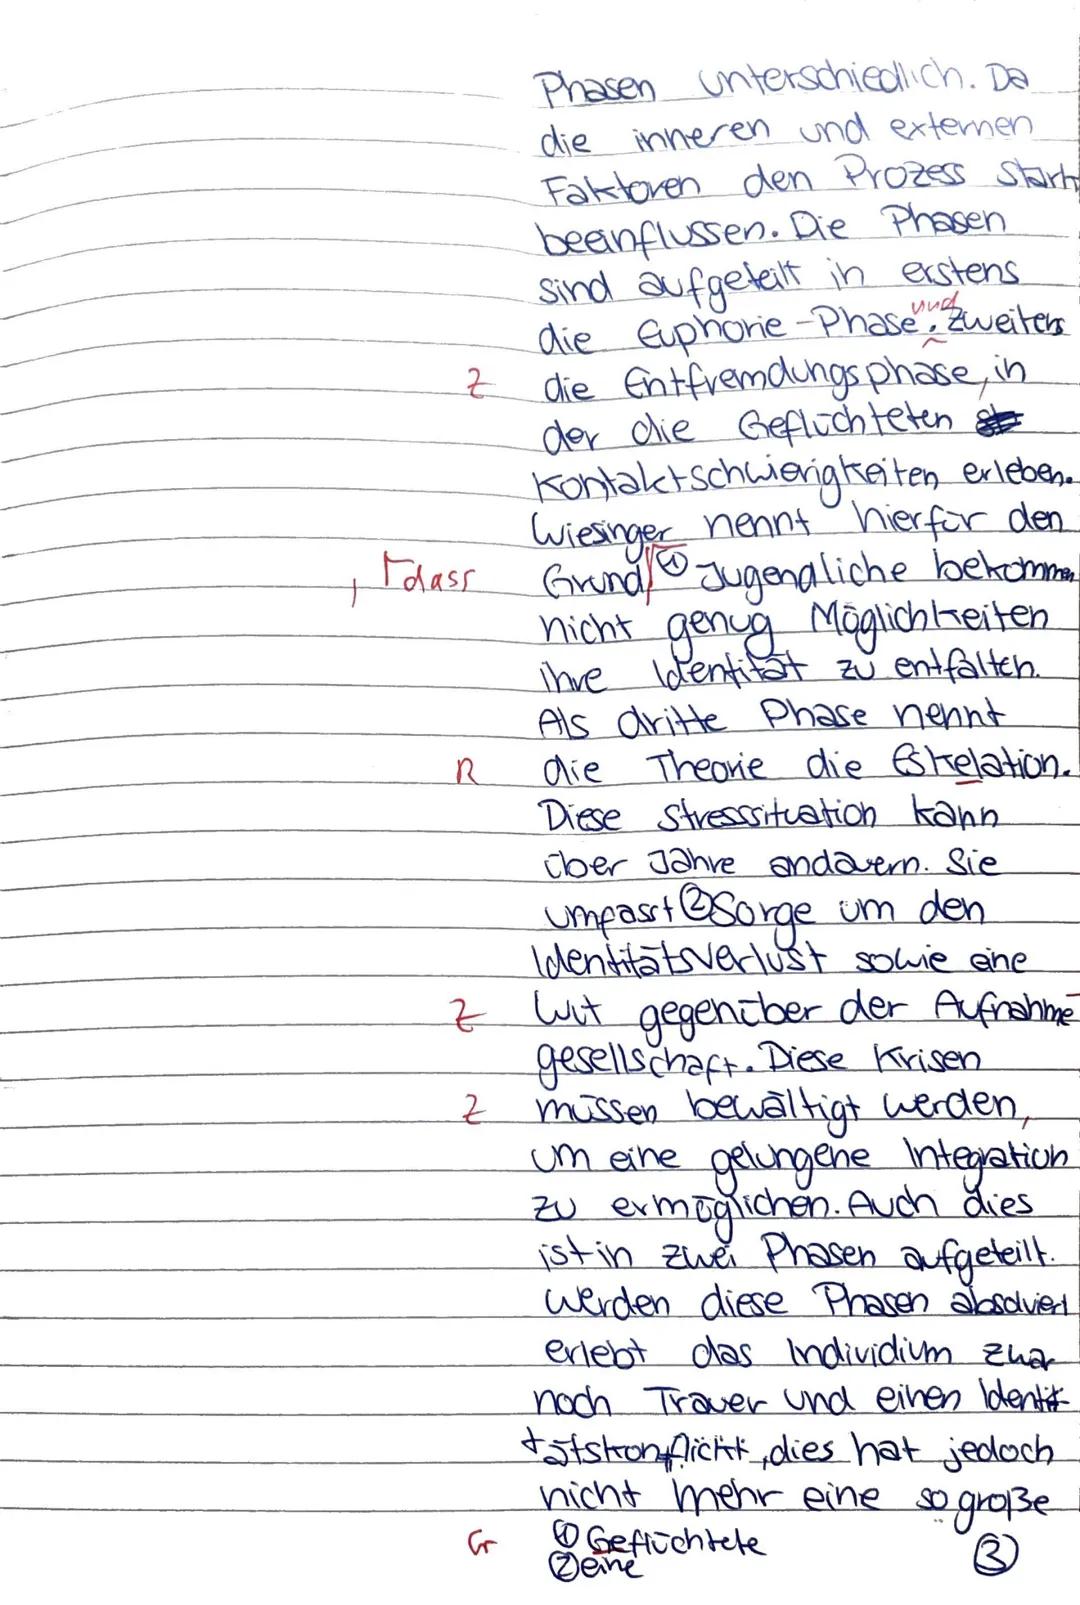 Phasen unterschiedlich. Da
die inneren und externen
Faktoren den Prozess stark
beeinflussen. Die Phasen
sind aufgeteilt in erstens
und
die Euphorie-Phase, zweitens
Z die Entfremdungsphase, in
der die Geflüchteten
Kontaktschwierigkeiten erleben.
Wiesinger nennt hierfür den
, ⌈dass Grund ① Jugendliche bekommen
nicht genug Möglichkeiten
ihre Identität zu entfalten.
Als dritte Phase nennt
R die Theorie die Eskelation.
Diese Stresssituation kann
über Jahre andauern. Sie
umfasst ② Sorge um den
Identitätsverlust sowie eine
Z Wut gegenüber der Aufnahme-
gesellschaft. Diese Krisen
Z müssen bewältigt werden,
um eine gelungene Integration
zu ermöglichen. Auch dies
ist in zwei Phasen aufgeteilt.
Werden diese Phasen absolviert
erlebt das Individium zwar
noch Trauer und einen Identi-
tätskonflickt, dies hat jedoch
nicht mehr eine so große
Gr ① Geflüchtete
② eine
③